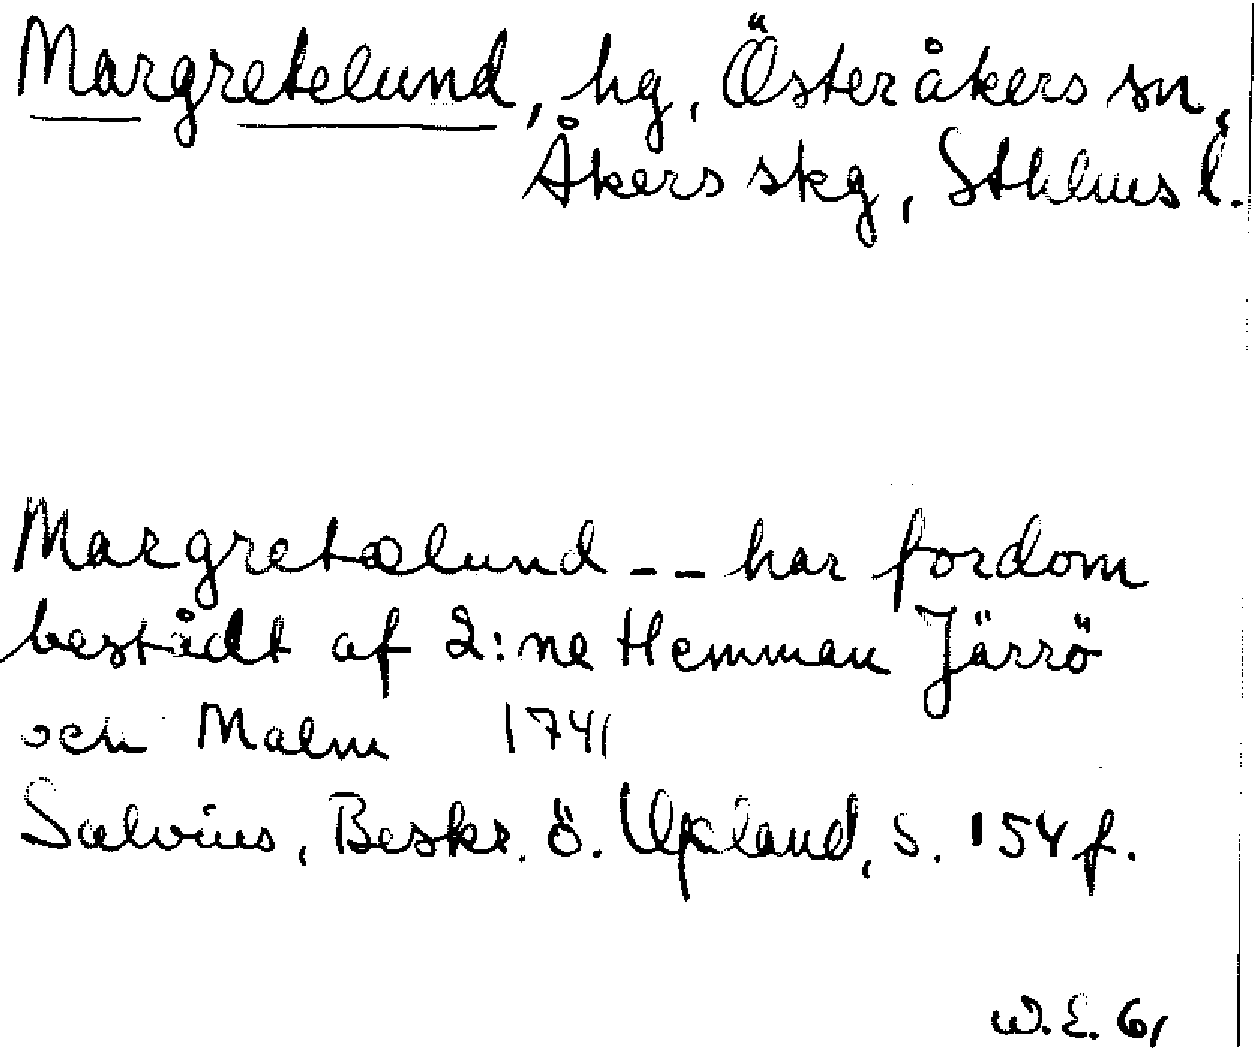 Margretelund, hg, Österåkers sn,
Åkers skg, Sthlms l.
Margretælund -- har fordom
bestådt af 2:ne Hemman Järrö
och Malm 1741
Salvius, Beskr. ö. Upland, S. 154 f.
W.E. 61